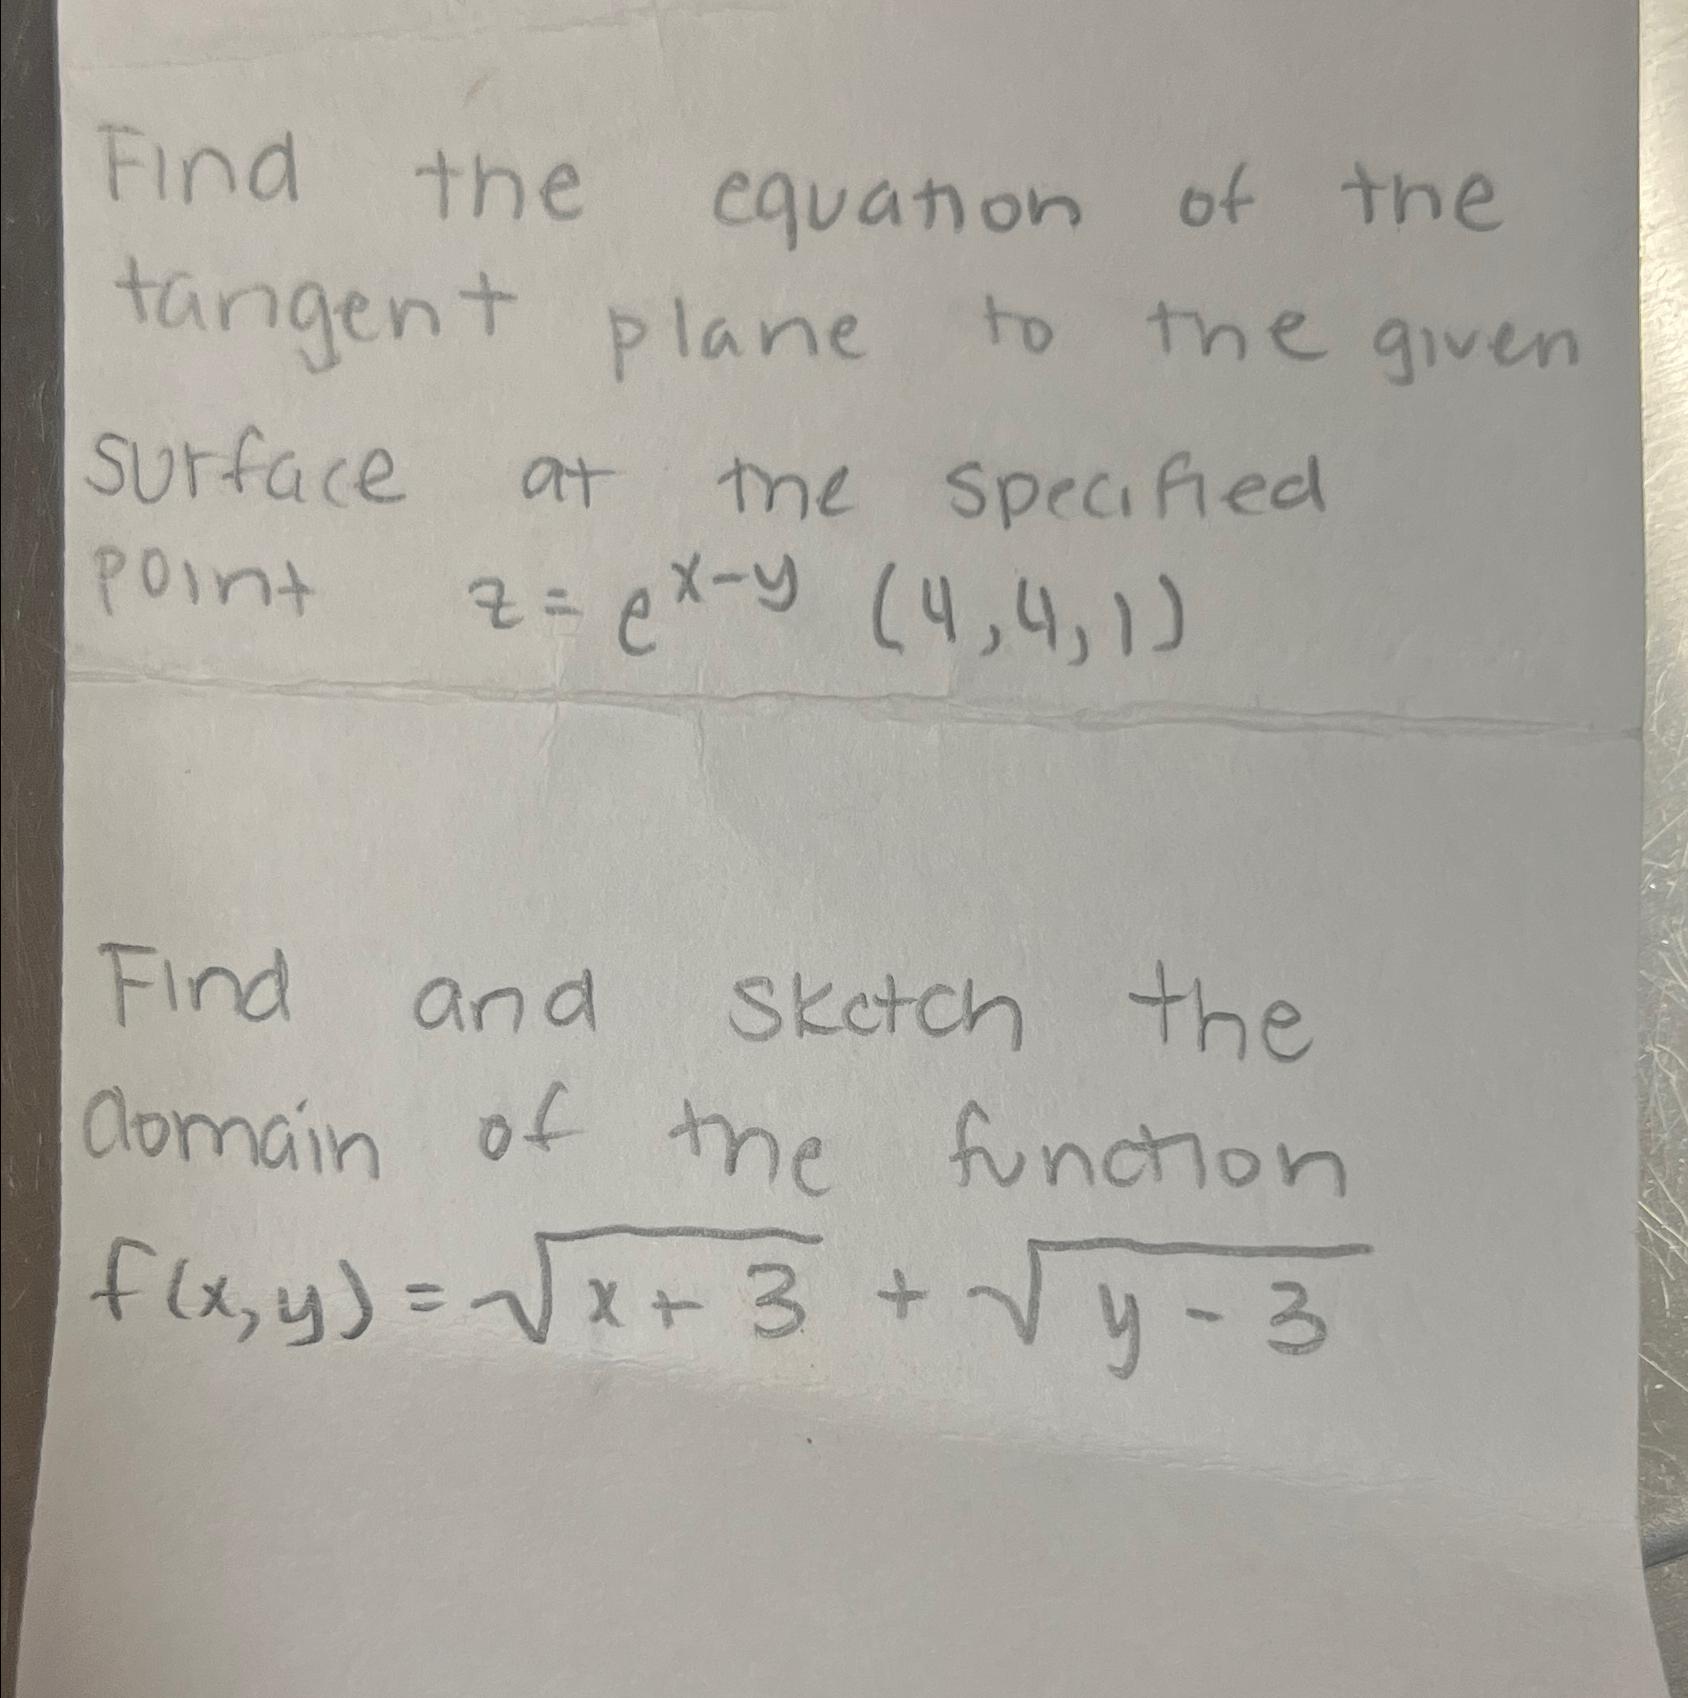 Find the equation of the
tangent plane to the given
surface at the specified
point z = e^{x-y} (4,4,1)
Find and sketch the
domain of the function
f(x,y) = √(x+3) + √(y-3)